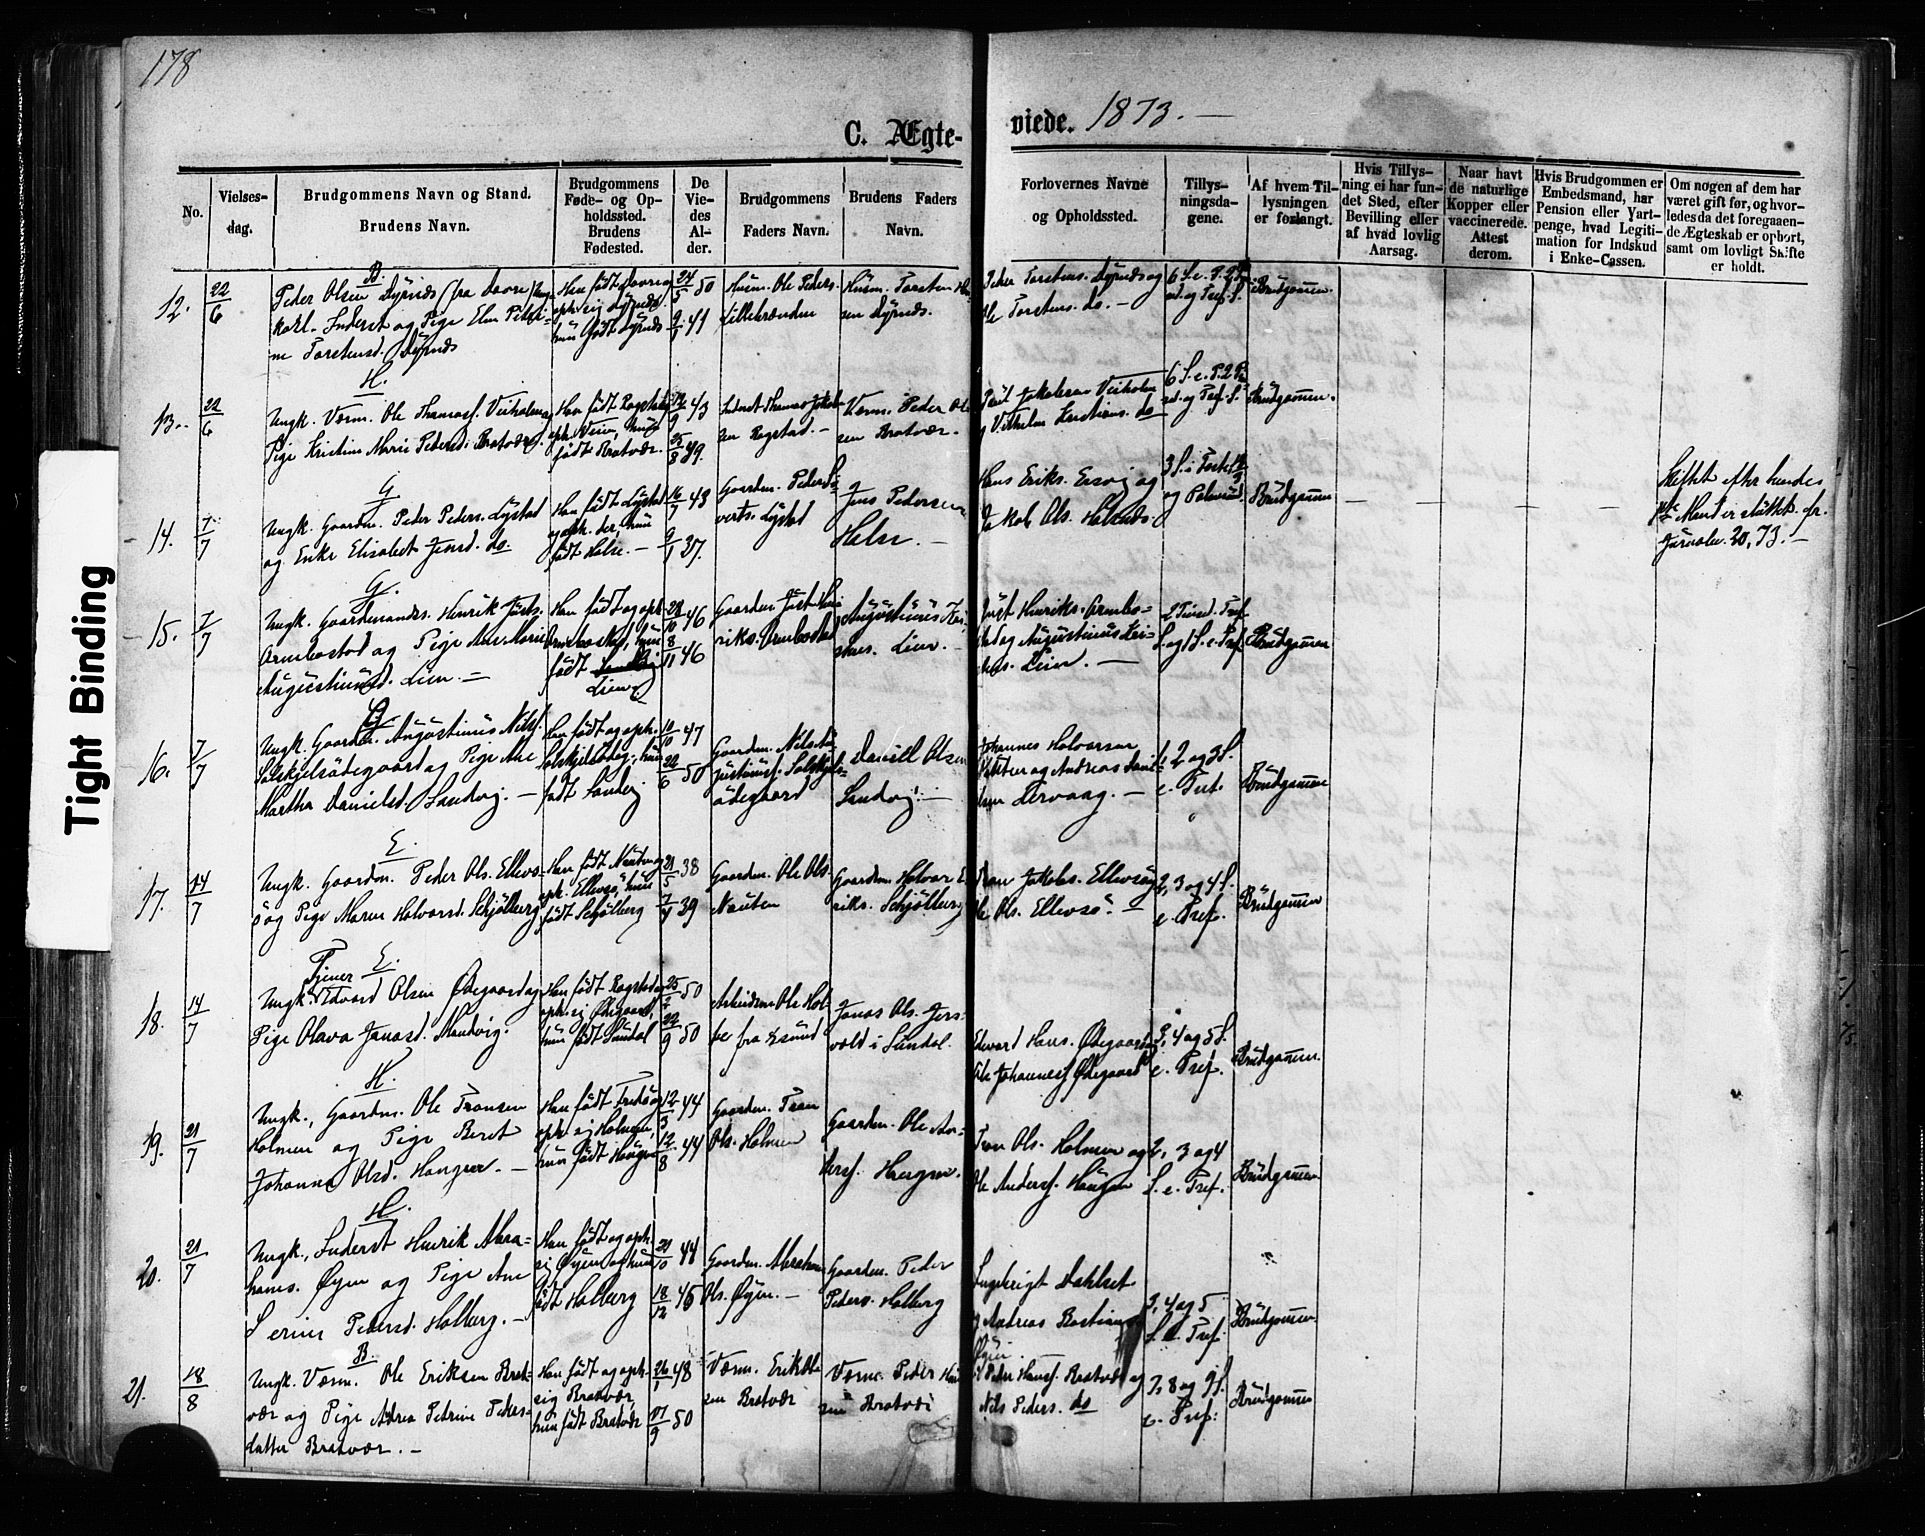 178
C. Ægte-
viede. 1873. —
Tight Binding
No.
Vielses-
dag.
Brudgommens Navn og Stand.
Brudens Navn.
Brudgommens
Føde- og Op-
holdssted.
Brudens
Fødested.
De
Vie-
des
Al-
der.
Brudgommens
Faders Navn.
Brudens Faders
Navn.
Forlovernes Navne
og Opholdssted.
Tillys-
ningsda-
gene.
Af hvem Til-
lysningen
er forlangt.
Hvis Tillys-
ning ei har fun-
det Sted, efter
Bevilling eller
af hvad lovlig
Aarsag.
Naar havt
de naturlige
Kopper eller
vaccinerede.
Attest
derom.
Hvis Brudgommen er
Embedsmand, har
Pension eller Vart-
penge, hvad Legiti-
mation for Indskud
i Enke-Cassen.
Om nogen af dem har
været gift før, og hvor-
ledes da det foregaaen-
de Ægteskab er ophørt,
samt om lovligt Skifte
er holdt.
12.
22/6
B.
Peder Olsen Dyrnæs (fra Dovre) Ung-
karl. Inderst og Pige Elen Petri-
ne Torstensd. Dyrnæs
24/5 50
9/1 41
Husm. Ole Peders.
Husm. Torsten
sen Dyrnæs.
Peder Torstens. Dyrnæs og
Ole Torstens. do. —
Brudgommen.
13.
22/6
H.
Ungk. Værm. Ole Thomass. Veiholmen og
Pige Kristine Marie Pedersd. Bratvær.
Han født Rogstad
født Bratvær.
12/9 43
25/8 49.
Inderst Thomas Jakob-
sen Rogstad. —
Værm. Peder Ol-
sen Bratvær.
Poul Jakobsen Veiholm
og Vilhelm Kristians. do
Brudgommen.
14.
7/7
G
Ungk. Gaardm. Peder Peders. Lystad
og Enke Elisabet Jensd. do.
Han født Lystad
og oph. der, hun
født Helse. —
16/7 43
9/1 37.
Gaardm. Peder Si-
verts. Lystad
Jens Pedersen
Helse. —
Hans Eriks. Ersvig og
Jakob Ols. Halsnæs.
Brudgommen
Skiftet efter hendes
første Mand er sluttet. cfr.
Journaler. 20, 73. —
15.
7/7
G.
Ungk. Gaardmands. Henrik Justs.
Ormbostad og Pige Ane Marie
Augustinusd. Lien. —
Han født og oph.
Ormbostad, hun
født
Lien.
28/10 46
8/11 46
Gaardm. Just Hen-
riks. Ormbostad
Just Henriks. Ormbo-
stad og Augustinus Kri-
stians. Lien. —
Brudgommen
16.
7/7
G
Ungk. Gaardm. Augustinus Nilss.
Solskjelsødegaard og Pige Ane
Martha Danielsd. Sandvig. —
Han født og oph.
Solskjelsødeg., hun
født Sandvig
10/10 47
22/6 50
Gaardm. Nils Au-
gustinuss. Solskjels-
ødegaard
Daniell Olsen
Sandvig. —
Johannes Halvorsen
og Andreas Dani-
elsen Lervaag. —
1, 2 og 3 S.
e. Tref.
Brudgommen
17.
14/7
E.
Ungk. Gaardm. Peder Ols. Ellevs-
ø og Pige Maren Halvorsd. Schjølberg
Han født Nauten og
oph. Ellevsø, hun
født Schjølberg
21/5 38
7/4 39
Gaardm. Ole Ols.
Nauten
Gaardm. Halvor E-
riks. Schjølberg
Tron Jakobs. Ellevsø og
Ole Ols. Ellevsø. —
2, 3 og 4 S.
e. Tref.
Brudgommen
18.
14/7
E.
Tjener
Ungk. Edvard Olsen Ødegaard og
Pige Olava Jonasd. Mandvig.
Han født Rogstad og
oph. sig Ødegaard,
hun født Sundal
25/2 50
22/9 50
Arbeidsm. Ole Hol-
be fra Xsund
Jonas Ols. Jers-
vold i Sundal.
Edvard Hans. Ødegaard
Ole Johanness. Ødegaard
3, 4 og 5 S.
e. Tref.
Brudgommen.
19.
21/7
H.
Ungk., Gaardm. Ole Tronsen
Holmen og Pige Beret
Johanna Olsd. Haugen. —
Han født Fredsø og
oph. sig Holmen,
hun født Haugen
12/3 44
12/8 44
Gaardm. Tron
Ols. Holmen
Gaardm. Ole An-
derss. Haugen.
Tron Ols. Holmen og
Ole Anderss. Haugen
2, 3 og 4
S. e. Tref.
Brudgommen
20.
21/7
H.
Ungk., Inderst Henrik Abra-
hams. Øyen og Pige Ane
Serine Pedersd. Holberg. —
Han født og oph.
sig Øyen og hun
født Holberg
21/10 44
18/12 45
Gaardm. Abraham
Ols. Øyen. —
Gaardm. Peder
Peders. Holberg
Ingebrigt Dahlset
og Andreas Bastians.
Øyen
3, 4 og 5
S. e. Tref.
Brudgommen.
21.
18/8
B.
Ungk. Værm. Ole Eriksen Brat-
vær og Pige Adrea Petrine Peders-
datter Bratvær. —
Han født og oph.
sig Bratvær,
hun født Bratvær
26/1 48
17/9 50
Værm. Erik Ol-
sen Bratvær
Værm. Peder Han-
sen Bratvær
Peder Hanss. Bratvær og
Nils Peders. do
7, 8 og 9 S.
e. Tref.
Brudgommen